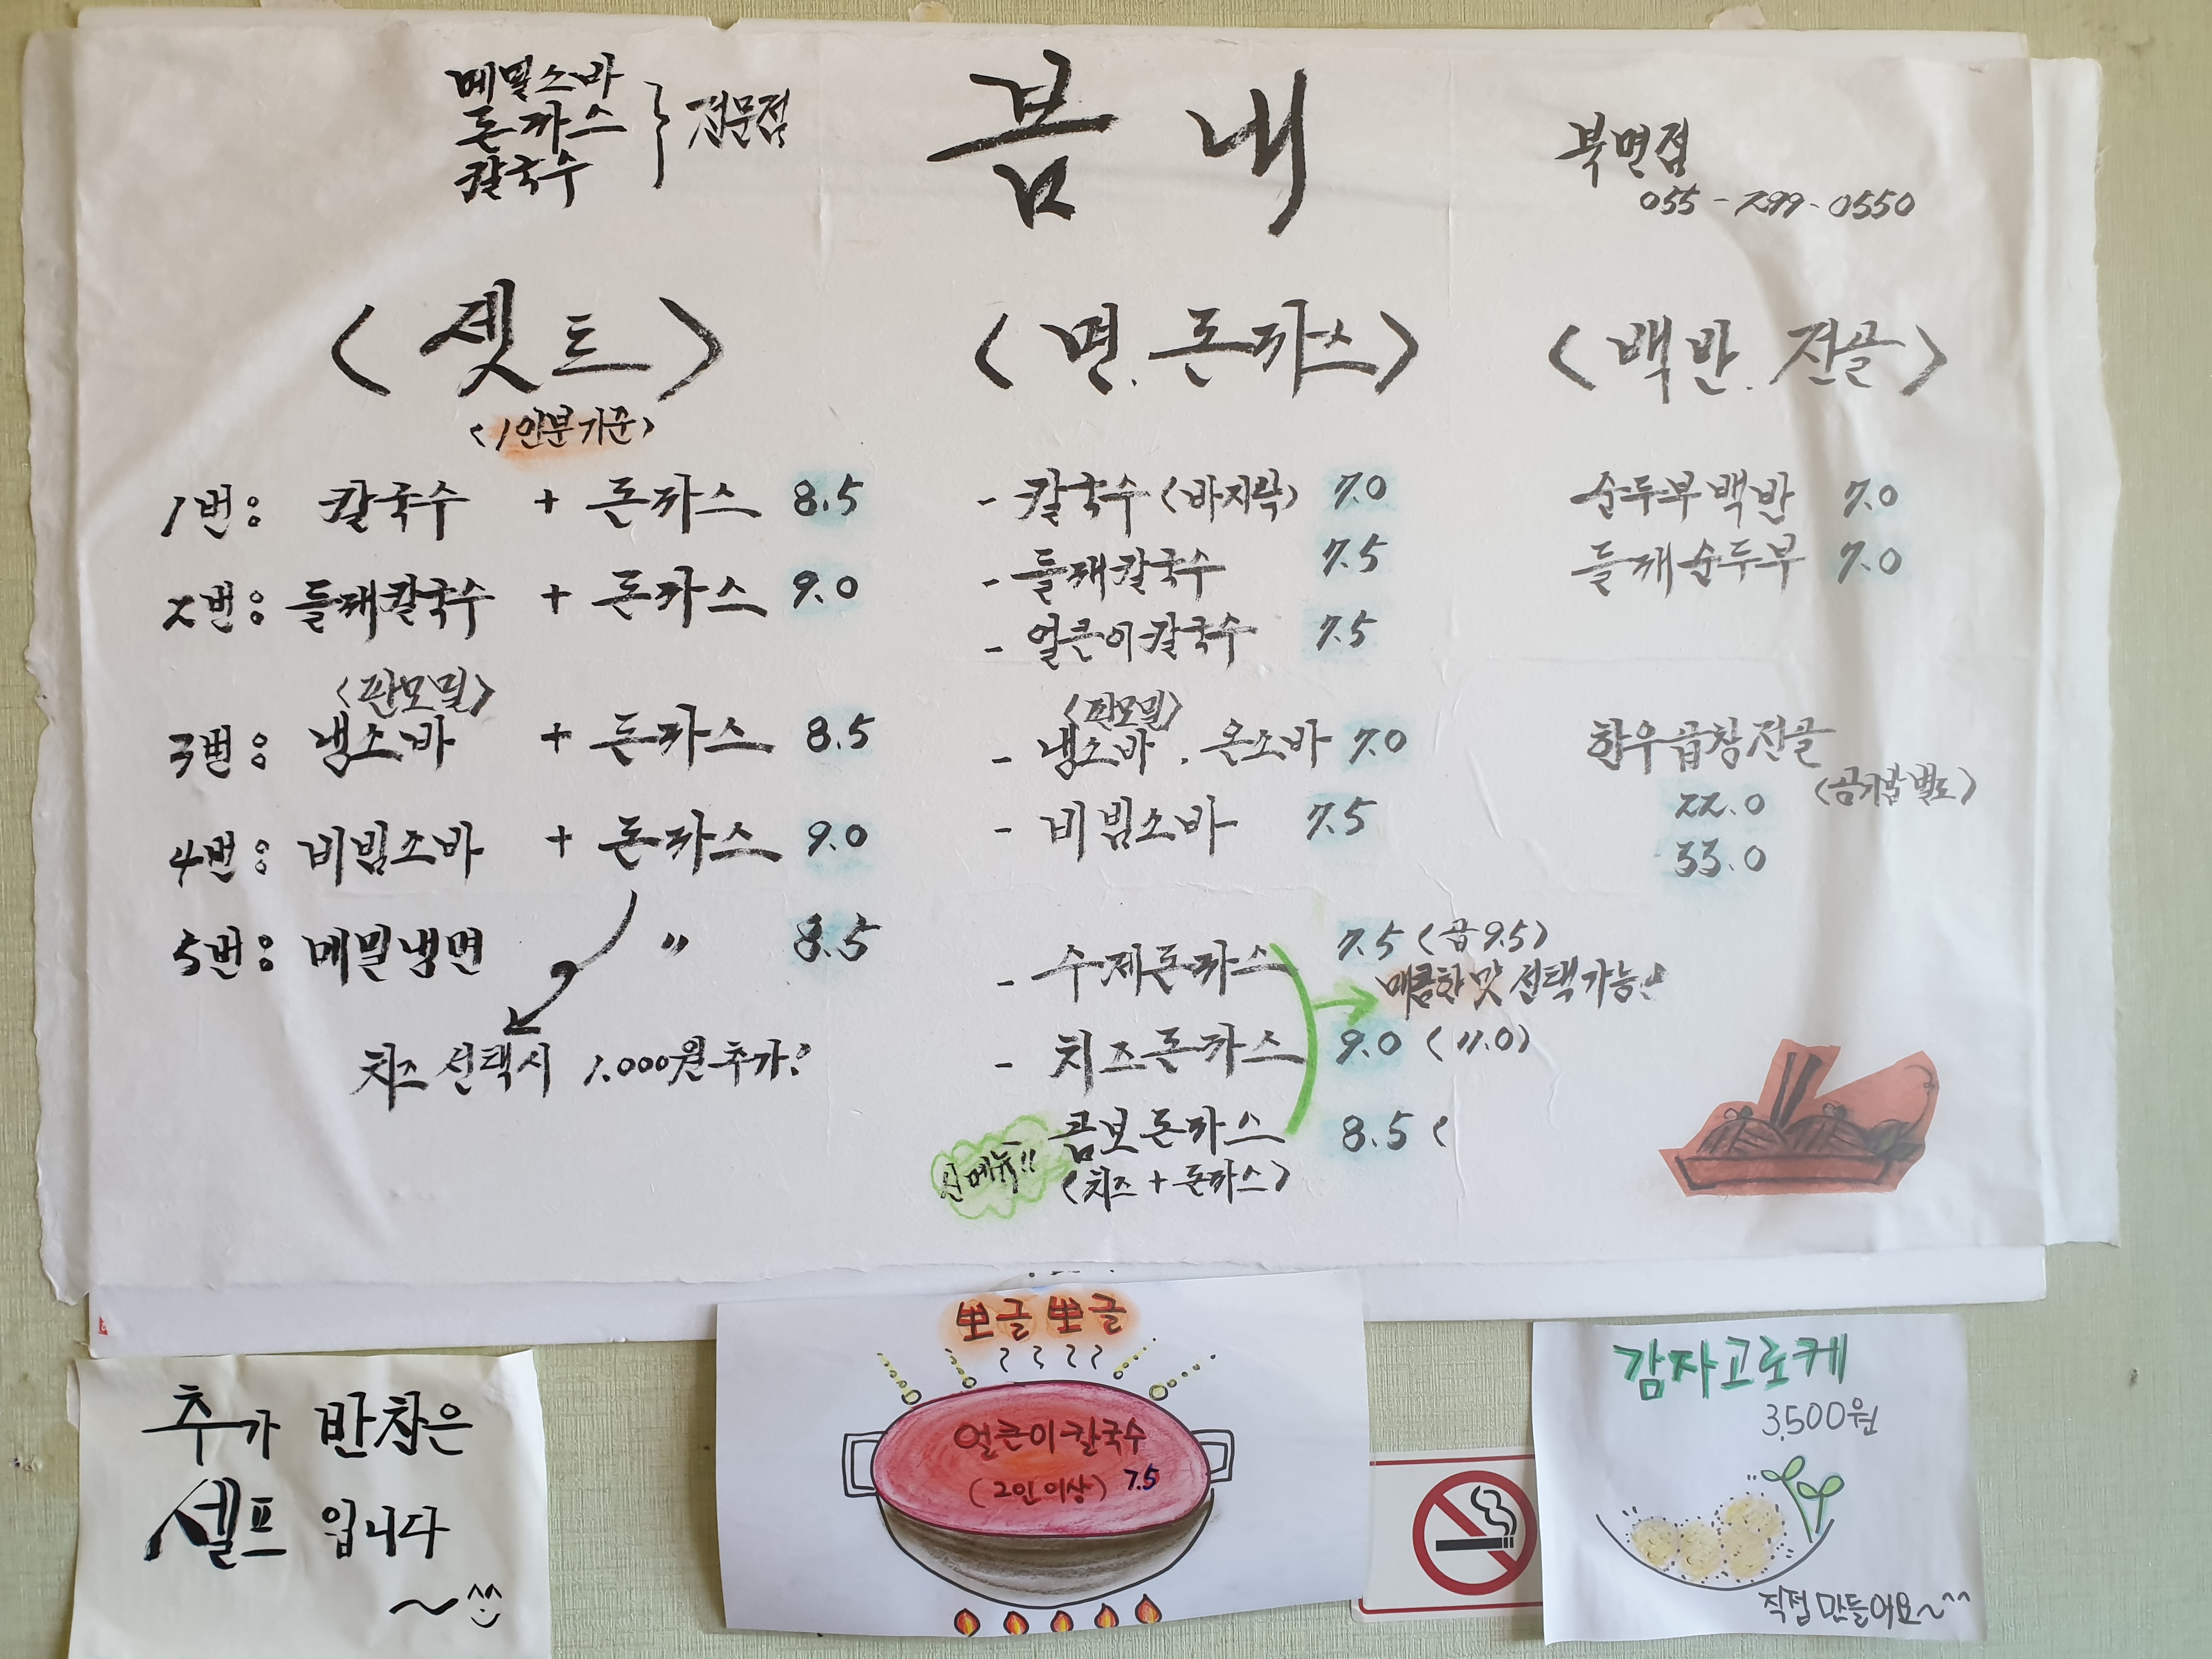 메밀소바
돈까스
칼국수
전문점
봄내
북면점
055-299-0550
<셋트>
<1인분기준>
1번: 칼국수 + 돈까스 8.5
2번: 들깨칼국수 + 돈까스 9.0
<판모밀>
3번: 냉소바 + 돈까스 8.5
4번: 비빔소바 + 돈까스 9.0
5번: 메밀냉면 〃 8.5
치즈 선택시 1.000원 추가!
<면.돈까스>
- 칼국수 (바지락) 7.0
- 들깨칼국수 7.5
- 얼큰이칼국수 7.5
<판모밀>
- 냉소바 . 온소바 7.0
- 비빔소바 7.5
- 수제돈까스 7.5 (곱 9.5)
매콤한맛 선택가능!
- 치즈돈까스 9.0 (11.0)
신메뉴!! 콤보돈까스 8.5 (
(치즈 + 돈까스)
<백반.전골>
순두부백반 7.0
들깨순두부 7.0
한우곱창전골
(공기밥별도)
22.0
33.0
추가 반찬은
셀프 입니다
~^^
뽀글뽀글
얼큰이칼국수
(2인이상) 7.5
감자고로케
3,500원
직접만들어요~^^